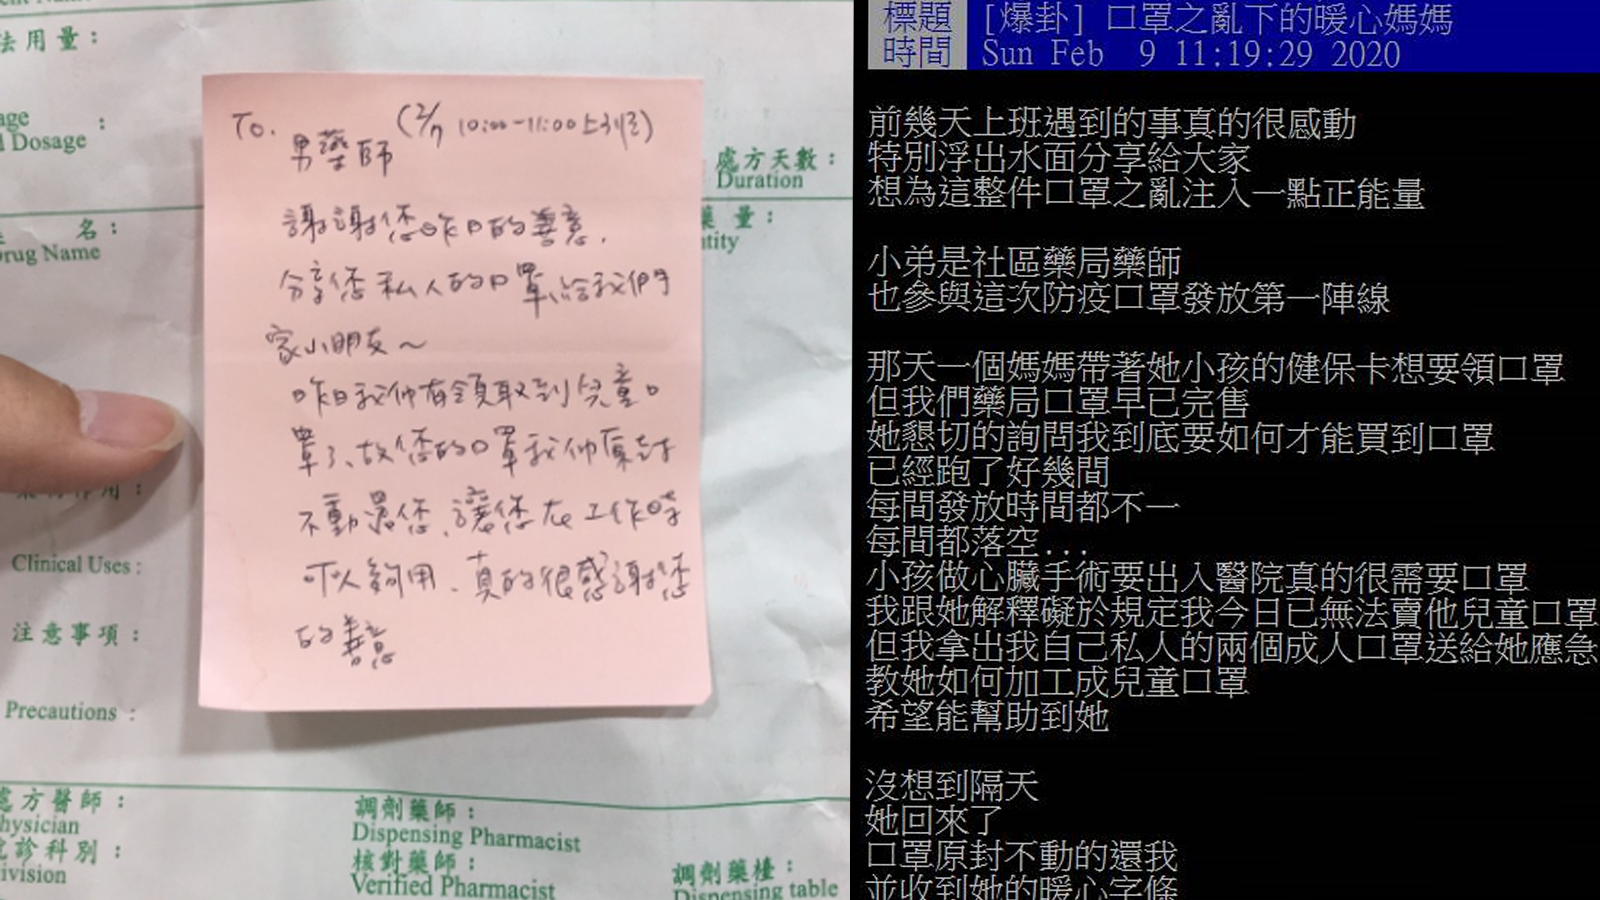 法用量：
age
l Dosage
：
處方天數：
Duration
名：
Drug Name
藥量：
ntity
Clinical Uses：
注意事項：
Precautions：
處方醫師：
hysician
診科別：
ivision
調劑藥師：
Dispensing Pharmacist
核對藥師：
Verified Pharmacist
調劑藥檯：
Dispensing table
TO. 男藥師 (2/7 10:00-11:00上班)
謝謝您昨日的善意，
分享您私人的口罩給我們
家小朋友～
昨日我們有領取到兒童口
罩了、故您的口罩我們原封
不動還您、讓您在工作時
可以夠用、真的很感謝您
的善意
標題 [爆卦] 口罩之亂下的暖心媽媽
時間 Sun Feb 9 11:19:29 2020
前幾天上班遇到的事真的很感動
特別浮出水面分享給大家
想為這整件口罩之亂注入一點正能量
小弟是社區藥局藥師
也參與這次防疫口罩發放第一陣線
那天一個媽媽帶著她小孩的健保卡想要領口罩
但我們藥局口罩早已完售
她懇切的詢問我到底要如何才能買到口罩
已經跑了好幾間
每間發放時間都不一
每間都落空...
小孩做心臟手術要出入醫院真的很需要口罩
我跟她解釋礙於規定我今日已無法賣他兒童口罩
但我拿出我自己私人的兩個成人口罩送給她應急
教她如何加工成兒童口罩
希望能幫助到她
沒想到隔天
她回來了
口罩原封不動的還我
並收到她的暖心字條